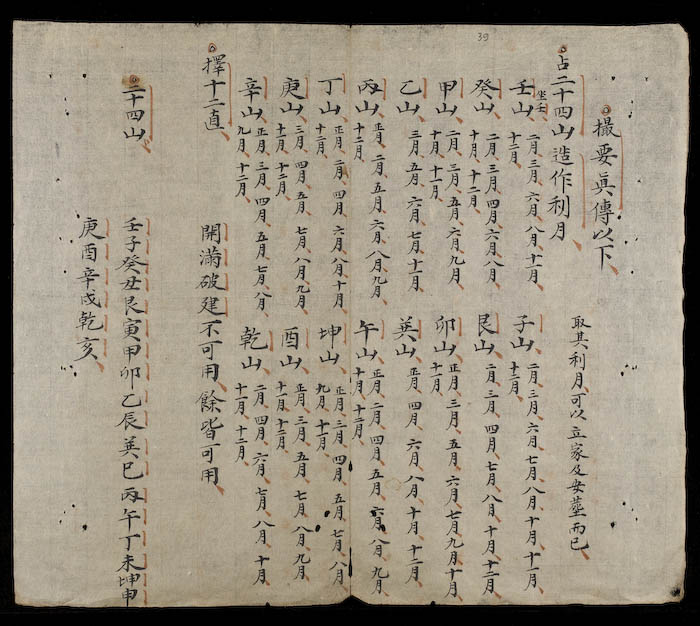 39
撮要眞傳以下
占二十四山造作利月 取其利月可以立家及安塟而已
壬山 坐壬 二月 三月 六月 八月 十一月
十二月
子山 二月 三月 六月 七月 八月 十月 十一月
十二月
癸山 二月 三月 四月 六月 八月
十月 十二月
艮山 二月 三月 四月 七月 八月 十月 十二月
甲山 二月 三月 五月 六月 九月
十月 十一月
卯山 正月 三月 五月 六月 七月 九月 十月
十一月
乙山 三月 五月 六月 七月 十一月
巽山 正月 四月 六月 八月 十月 十二月
丙山 正月 二月 五月 六月 八月 九月
十二月
午山 正月 二月 四月 五月 六月 八月 九月
十月 十二月
丁山 正月 二月 四月 六月 八月 十月
十二月
坤山 正月 三月 四月 五月 七月 八月
九月 十一月
庚山 三月 四月 五月 七月 八月 九月
十一月 十二月
酉山 正月 三月 五月 七月 八月 九月
十一月 十二月
辛山 正月 三月 四月 五月 七月 八月
九月 十二月
乾山 二月 四月 六月 七月 八月 十月
十一月 十二月
擇十二直 開滿破建不可用餘皆可用
二十四山 壬子癸丑艮寅甲卯乙辰巽巳丙午丁未坤申
庚酉辛戌乾亥